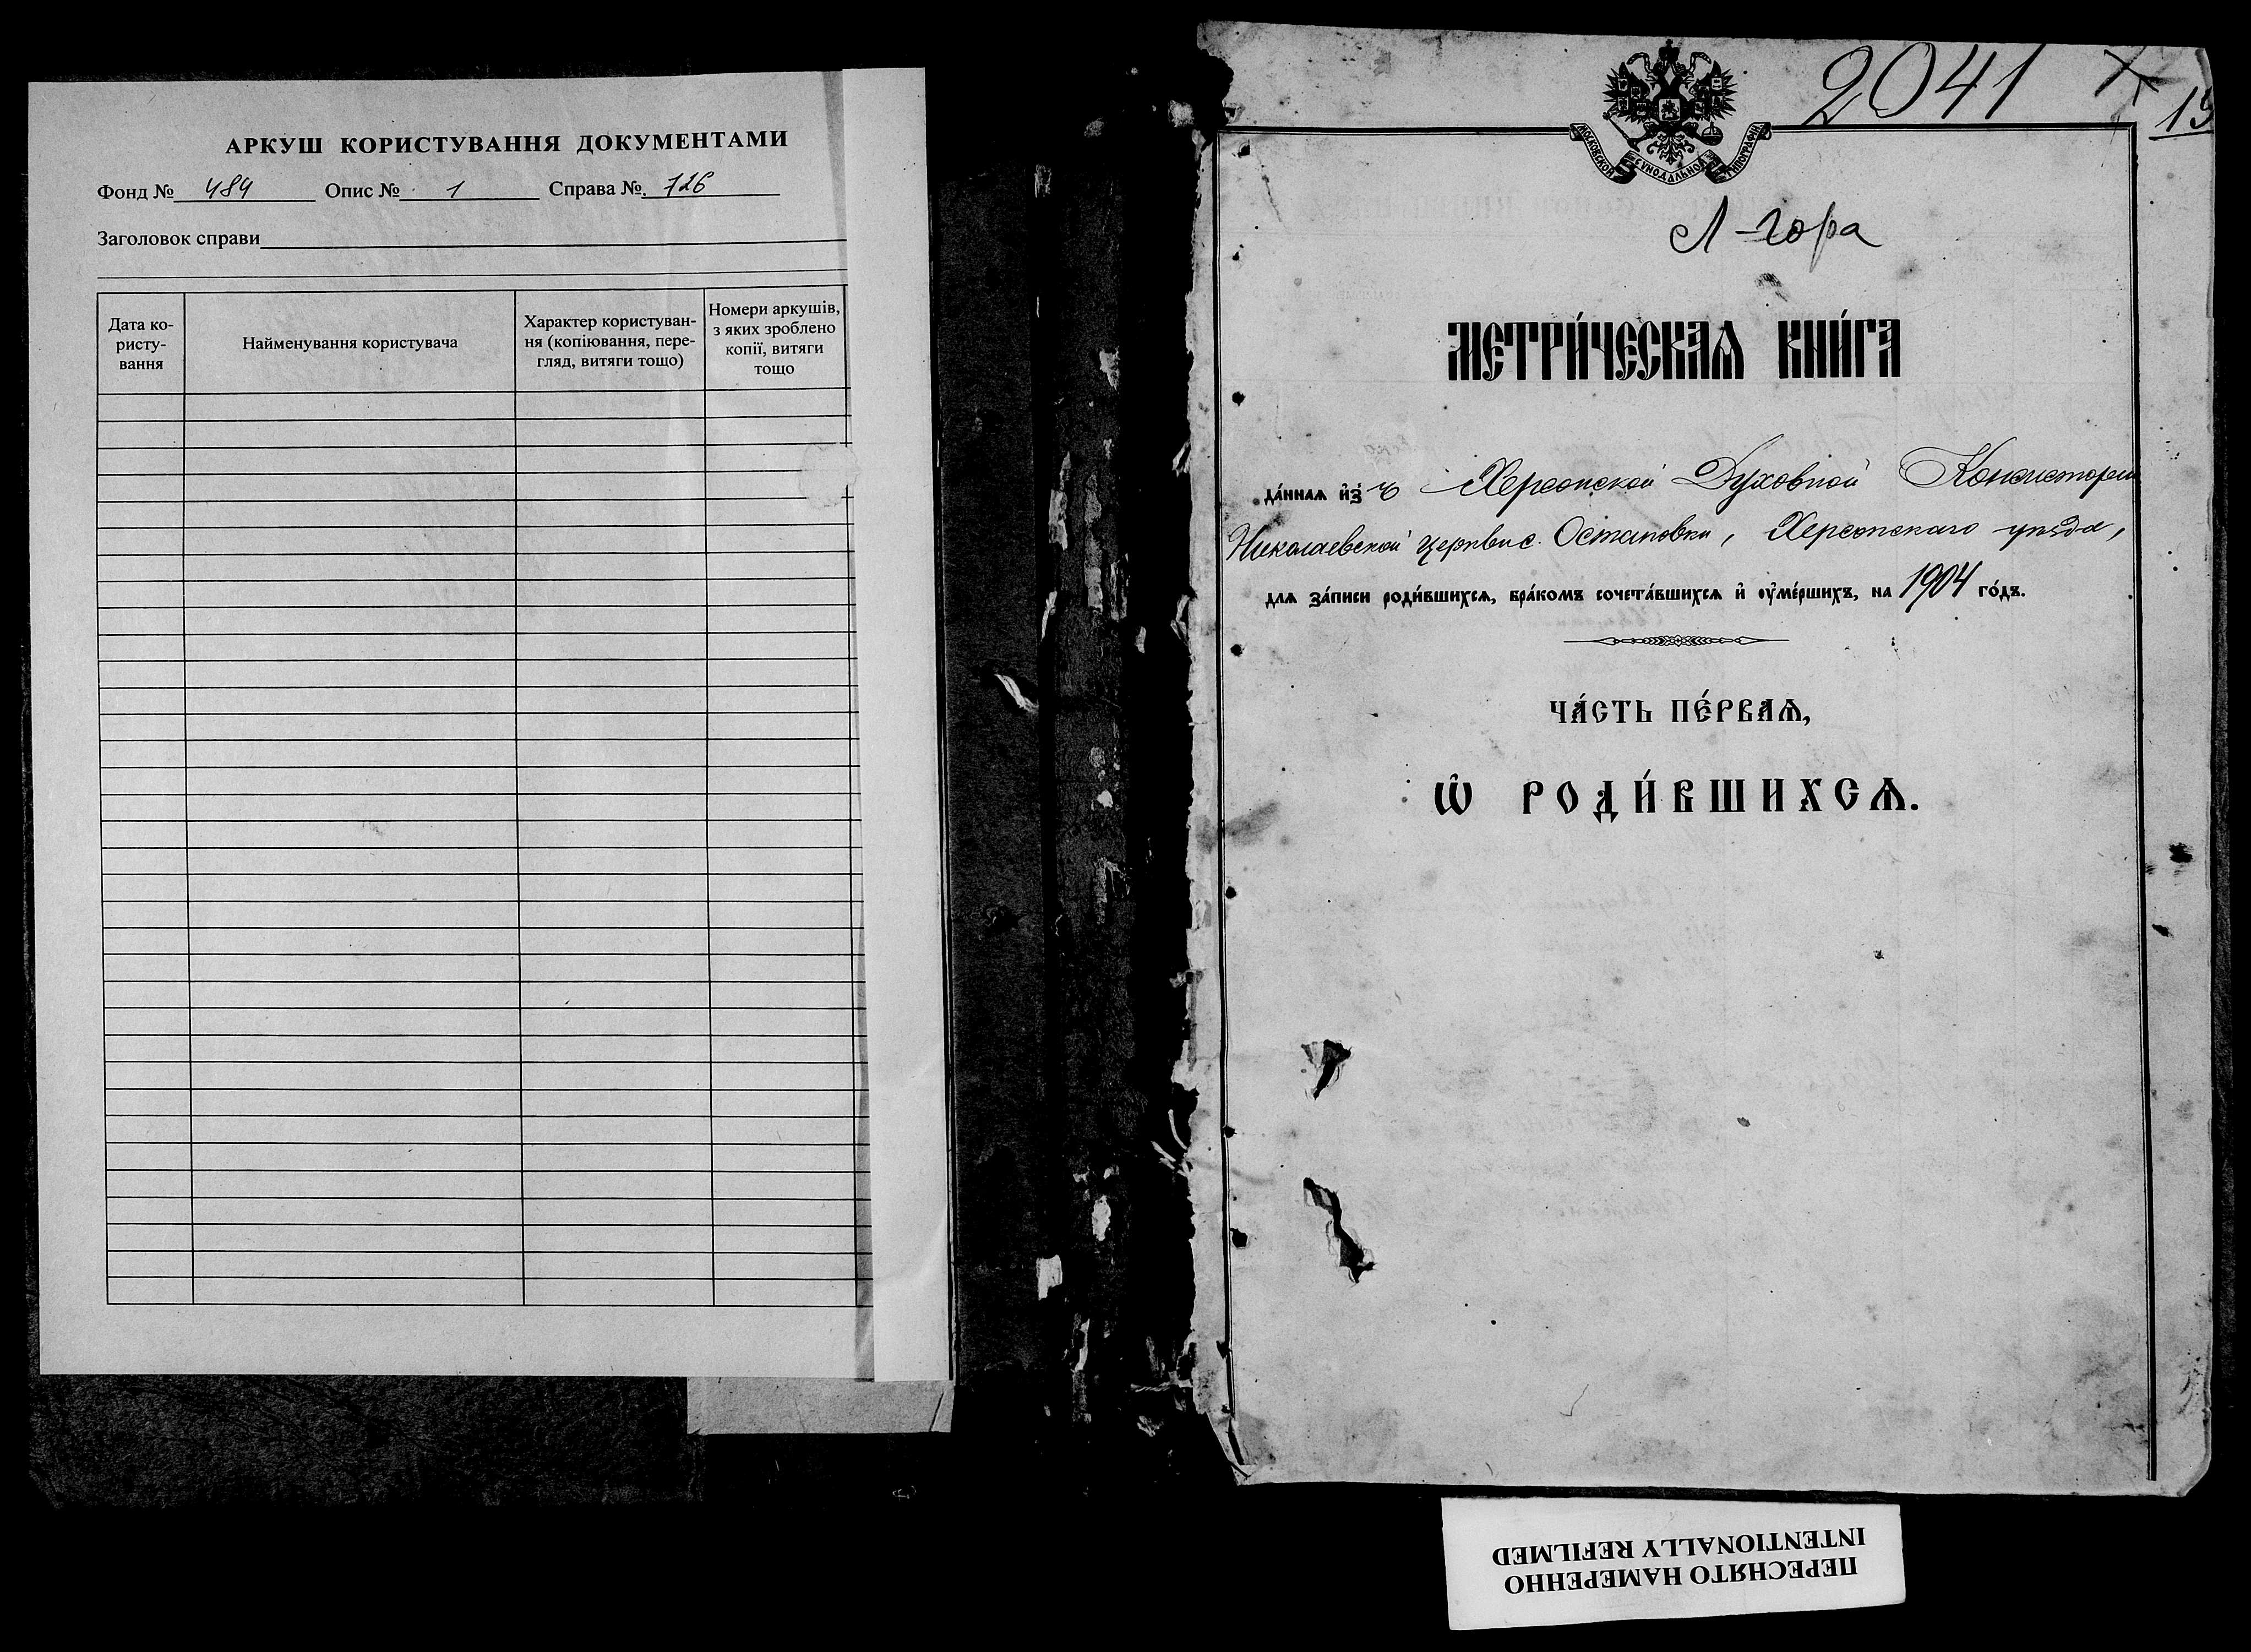 АРКУШ КОРИСТУВАННЯ ДОКУМЕНТАМИ
Фонд № 484 Опис № 1 Справа № 726
Заголовок справи
Дата ко-
ристу-
вання
Найменування користувача
Характер користуван-
ня (копіювання, пере-
гляд, витяги тощо)
Номери аркушів,
з яких зроблено
копії, витяги
тощо
2041
МОСКОВСКОЙ СУНОДАЛЬНОЙ ТИПОГРАФІИ
Л-гора
МЕТРИ́ЧЕСКАѦ КНИ́ГА
да́ннаѧ и҆зъ Херсонской Духовной Консисторіи
Николаевской церкви с. Остановки, Херсонскаго уѣзда,
длѧ за́писи роди́вшихсѧ, бра́комъ сочета́вшихсѧ и҆ оуме́ршихъ, на 1904 го́дъ.
ЧА́СТЬ ПЕ́РВАѦ,
Ѡ РОДИ́ВШИХСѦ.
ПЕРЕСНЯТО НАМЕРЕННО
INTENTIONALLY REFILMED